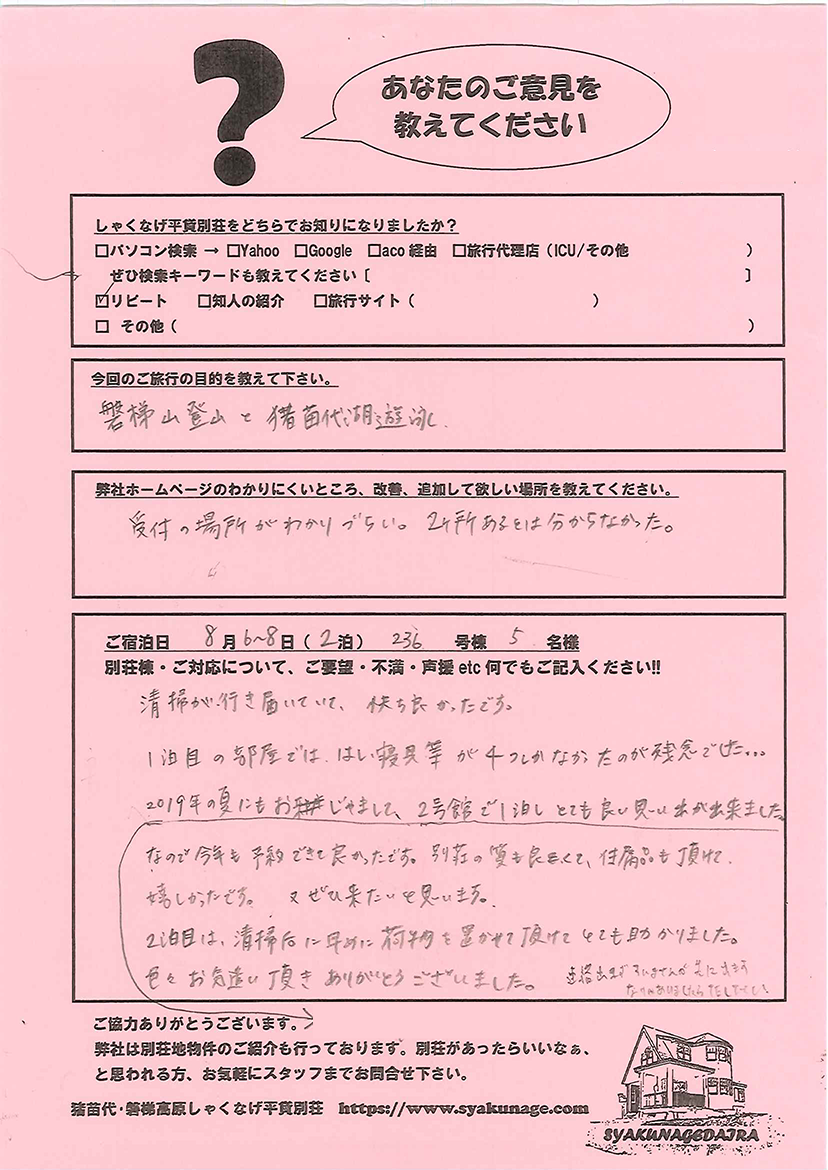 ?
あなたのご意見を
教えてください
しゃくなげ平貸別荘をどちらでお知りになりましたか？
□パソコン検索 → □Yahoo □Google □aco経由 □旅行代理店（ICU/その他 ）
ぜひ検索キーワードも教えてください［ ］
☑リピート □知人の紹介 □旅行サイト（ ）
□ その他（ ）
今回のご旅行の目的を教えて下さい。
磐梯山登山と猪苗代湖遊泳.
弊社ホームページのわかりにくいところ、改善、追加して欲しい場所を教えてください。
受付の場所がわかりづらい。2ヶ所あるとは分からなかった。
ご宿泊日 8月6~8日（2泊） 236 号棟 5 名様
別荘棟・ご対応について、ご要望・不満・声援etc何でもご記入ください!!
清掃が行き届いていて、気持ち良かったです。
1泊目の部屋では、はし、寝具等が4つしかなかったのが残念でした...
2019年の夏にもおじゃまして、2号館で1泊しとても良い思い出が出来ました。
なので今年も予約できて良かったです。別荘の質も良くて、付属品も頂けて
嬉しかったです。又ぜひ来たいと思います。
2泊目は、清掃后に早めに荷物を置かせて頂けてとても助かりました。
色々お気遣い頂きありがとうございました。
ご協力ありがとうございます。
弊社は別荘地物件のご紹介も行っております。別荘があったらいいなぁ、
と思われる方、お気軽にスタッフまでお問合せ下さい。
猪苗代・磐梯高原しゃくなげ平貸別荘 https://www.syakunage.com
SYAKUNAGEDAIRA